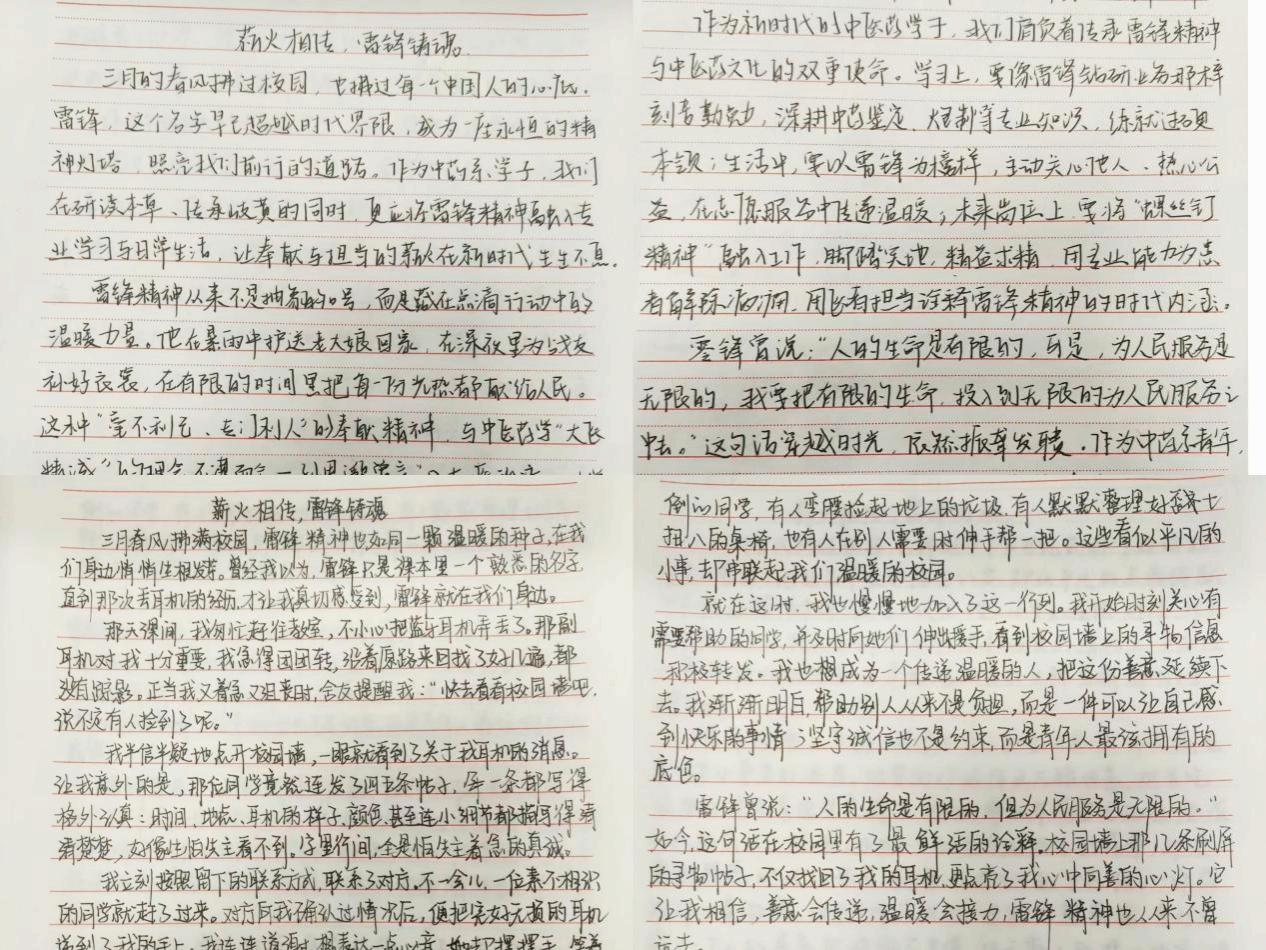 薪火相传,雷锋铸魂
三月的春风拂过校园,也拂过每一个中国人的心底.
雷锋,这个名字早已超越时代界限,成为一座永恒的精
神灯塔,照亮我们前行的道路。作为中药系学子,我们
在研读本草、传承岐黄的同时,更应将雷锋精神融入专
业学习与日常生活,让奉献与担当的薪火在新时代生生不息.
雷锋精神从来不是抽象的口号,而是藏在点滴行动中的
温暖力量。他在暴雨中护送老大娘回家,在深夜里为战友
补好衣裳,在有限的时间里把每一份光热都献给人民。
这种“毫不利己、专门利人”的奉献精神,与中医药学“大医
精诚”的理念不谋而合
作为新时代的中医药学子,我们肩负着传承雷锋精神
与中医药文化的双重使命。学习上,要像雷锋钻研业务那样
刻苦勤勉,深耕中药鉴定、炮制等专业知识,练就过硬
本领;生活中,要以雷锋为榜样,主动关心他人、热心公
益,在志愿服务中传递温暖;未来岗位上,要将“螺丝钉
精神”融入工作,脚踏实地,精益求精,用专业能力为患
者解除病痛,用医者担当诠释雷锋精神的时代内涵。
雷锋曾说:“人的生命是有限的,可是,为人民服务是
无限的,我要把有限的生命,投入到无限的为人民服务之
中去。”这句话穿越时光,依然振聋发聩。作为中药系青年,
薪火相传,雷锋铸魂
三月春风拂满校园,雷锋精神也如同一颗温暖的种子,在我
们身边悄悄生根发芽。曾经我以为,雷锋只是课本里一个熟悉的名字,
直到那次丢耳机的经历,才让我真切感受到,雷锋就在我们身边。
那天课间,我匆忙赶往教室,不小心把蓝牙耳机弄丢了。那副
耳机对我十分重要,我急得团团转,沿着原路来回找了好几遍,都
没有踪影。正当我又着急又沮丧时,舍友提醒我:“快去看看校园墙吧,
说不定有人捡到了呢。”
我半信半疑地点开校园墙,一眼就看到了关于我耳机的消息。
让我意外的是,那位同学竟然连发了四五条帖子,每一条都写得
格外认真:时间、地点、耳机的样子、颜色,甚至连小细节都描写得清
清楚楚,好像生怕失主看不到。字里行间,全是怕失主着急的真诚。
我立刻按照留下的联系方式,联系了对方。不一会儿,一位素不相识
的同学就赶了过来。对方向我确认过情况后,便把完好无损的耳机
递到了我的手上。我连连道谢,想表达一点心意,她却摆摆手,笑着
倒的同学,有人弯腰捡起地上的垃圾,有人默默整理好歪七
扭八的桌椅,也有人在别人需要时伸手帮一把。这些看似平凡的
小事,却串联起我们温暖的校园。
就在这时,我也慢慢地加入了这一行列。我开始时刻关心有
需要帮助的同学,并及时向她们伸出援手,看到校园墙上的寻物信息
积极转发。我也想成为一个传递温暖的人,把这份善意延续下
去。我渐渐明白,帮助别人从来不是负担,而是一件可以让自己感
到快乐的事情;坚守诚信也不是约束,而是青年人最该拥有的
底色。
雷锋曾说:“人的生命是有限的,但为人民服务是无限的。”
如今,这句话在校园里有了最鲜活的诠释。校园墙上那几条刷屏
的寻物帖子,不仅找回了我的耳机,更点亮了我心中向善的心灯。它
让我相信,善意会传递,温暖会接力,雷锋精神也从来不曾
远去。